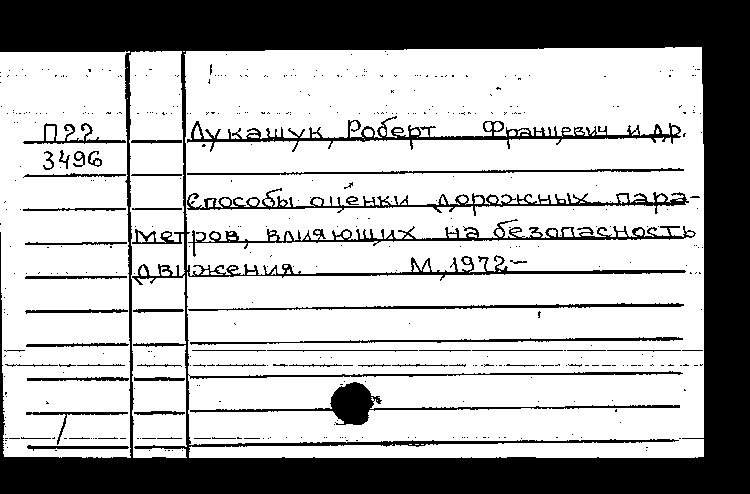 П22
3496
Лукашук, Роберт Францевич и др.
Способы оценки дорожных пара-
метров, влияющих на безопасность
движения. М., 1972-